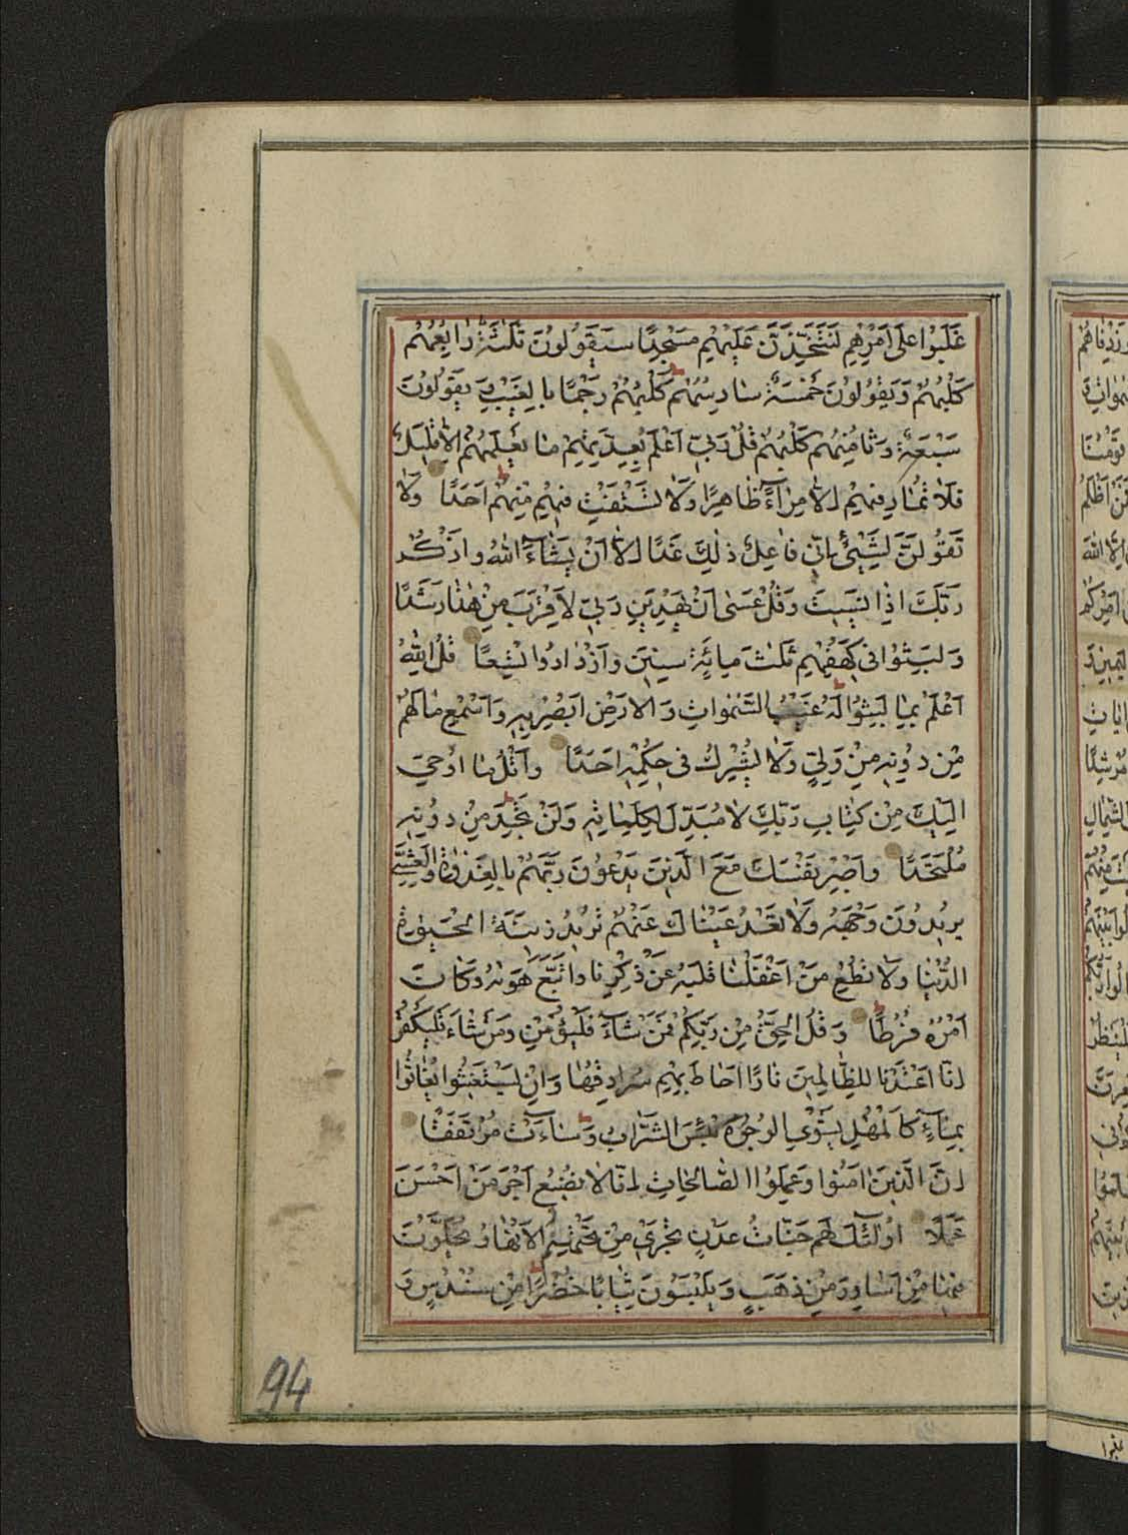 غَلَبُوا عَلَى اَمْرِهِمْ لَنَتَّخِذَنَّ عَلَيْهِمْ مَسْجِدًا سَيَقُولُونَ ثَلٰثَةٌ رَابِعُهُمْ
كَلْبُهُمْ وَيَقُولُونَ خَمْسَةٌ سَادِسُهُمْ كَلْبُهُمْ رَجْمًا بِالْغَيْبِ وَيَقُولُونَ
سَبْعَةٌ وَثَامِنُهُمْ كَلْبُهُمْ قُلْ رَبِّى اَعْلَمُ بِعِدَّتِهِمْ مَا يَعْلَمُهُمْ اِلَّا قَلِيلٌ
فَلَا تُمَارِ فِيهِمْ اِلَّا مِرَآءً ظَاهِرًا وَلَا تَسْتَفْتِ فِيهِمْ مِنْهُمْ اَحَدًا وَلَا
تَقُولَنَّ لِشَيْئٍ اِنِّى فَاعِلٌ ذٰلِكَ غَدًا اِلَّا اَنْ يَشَآءَ اللهُ وَاذْكُرْ
رَبَّكَ اِذَا نَسِيتَ وَقُلْ عَسٰى اَنْ يَهْدِيَنِ رَبِّى لِاَقْرَبَ مِنْ هٰذَا رَشَدًا
وَلَبِثُوا فِى كَهْفِهِمْ ثَلٰثَ مِائَةٍ سِنِينَ وَازْدَادُوا تِسْعًا قُلِ اللهُ
اَعْلَمُ بِمَا لَبِثُوا لَهُ غَيْبُ السَّمٰوَاتِ وَالْاَرْضِ اَبْصِرْ بِهِ وَاَسْمِعْ مَا لَهُمْ
مِنْ دُونِهِ مِنْ وَلِيٍّ وَلَا يُشْرِكُ فِى حُكْمِهِ اَحَدًا وَاتْلُ مَا اُوحِىَ
اِلَيْكَ مِنْ كِتَابِ رَبِّكَ لَا مُبَدِّلَ لِكَلِمَاتِهِ وَلَنْ تَجِدَ مِنْ دُونِهِ
مُلْتَحَدًا وَاصْبِرْ نَفْسَكَ مَعَ الَّذِينَ يَدْعُونَ رَبَّهُمْ بِالْغَدٰوةِ وَالْعَشِىِّ
يُرِيدُونَ وَجْهَهُ وَلَا تَعْدُ عَيْنَاكَ عَنْهُمْ تُرِيدُ زِينَةَ الْحَيٰوةِ
الدُّنْيَا وَلَا تُطِعْ مَنْ اَغْفَلْنَا قَلْبَهُ عَنْ ذِكْرِنَا وَاتَّبَعَ هَوٰيهُ وَكَانَ
اَمْرُهُ فُرُطًا وَقُلِ الْحَقُّ مِنْ رَبِّكُمْ فَمَنْ شَآءَ فَلْيُؤْمِنْ وَمَنْ شَآءَ فَلْيَكْفُرْ
اِنَّا اَعْتَدْنَا لِلظَّالِمِينَ نَارًا اَحَاطَ بِهِمْ سُرَادِقُهَا وَاِنْ يَسْتَغِيثُوا يُغَاثُوا
بِمَآءٍ كَالْمُهْلِ يَشْوِى الْوُجُوهَ بِئْسَ الشَّرَابُ وَسَآءَتْ مُرْتَفَقًا
اِنَّ الَّذِينَ اٰمَنُوا وَعَمِلُوا الصَّالِحَاتِ اِنَّا لَا نُضِيعُ اَجْرَ مَنْ اَحْسَنَ
عَمَلًا اُولٰئِكَ لَهُمْ جَنَّاتُ عَدْنٍ تَجْرِى مِنْ تَحْتِهِمُ الْاَنْهَارُ يُحَلَّوْنَ
فِيهَا مِنْ اَسَاوِرَ مِنْ ذَهَبٍ وَيَلْبَسُونَ ثِيَابًا خُضْرًا مِنْ سُنْدُسٍ وَ
94